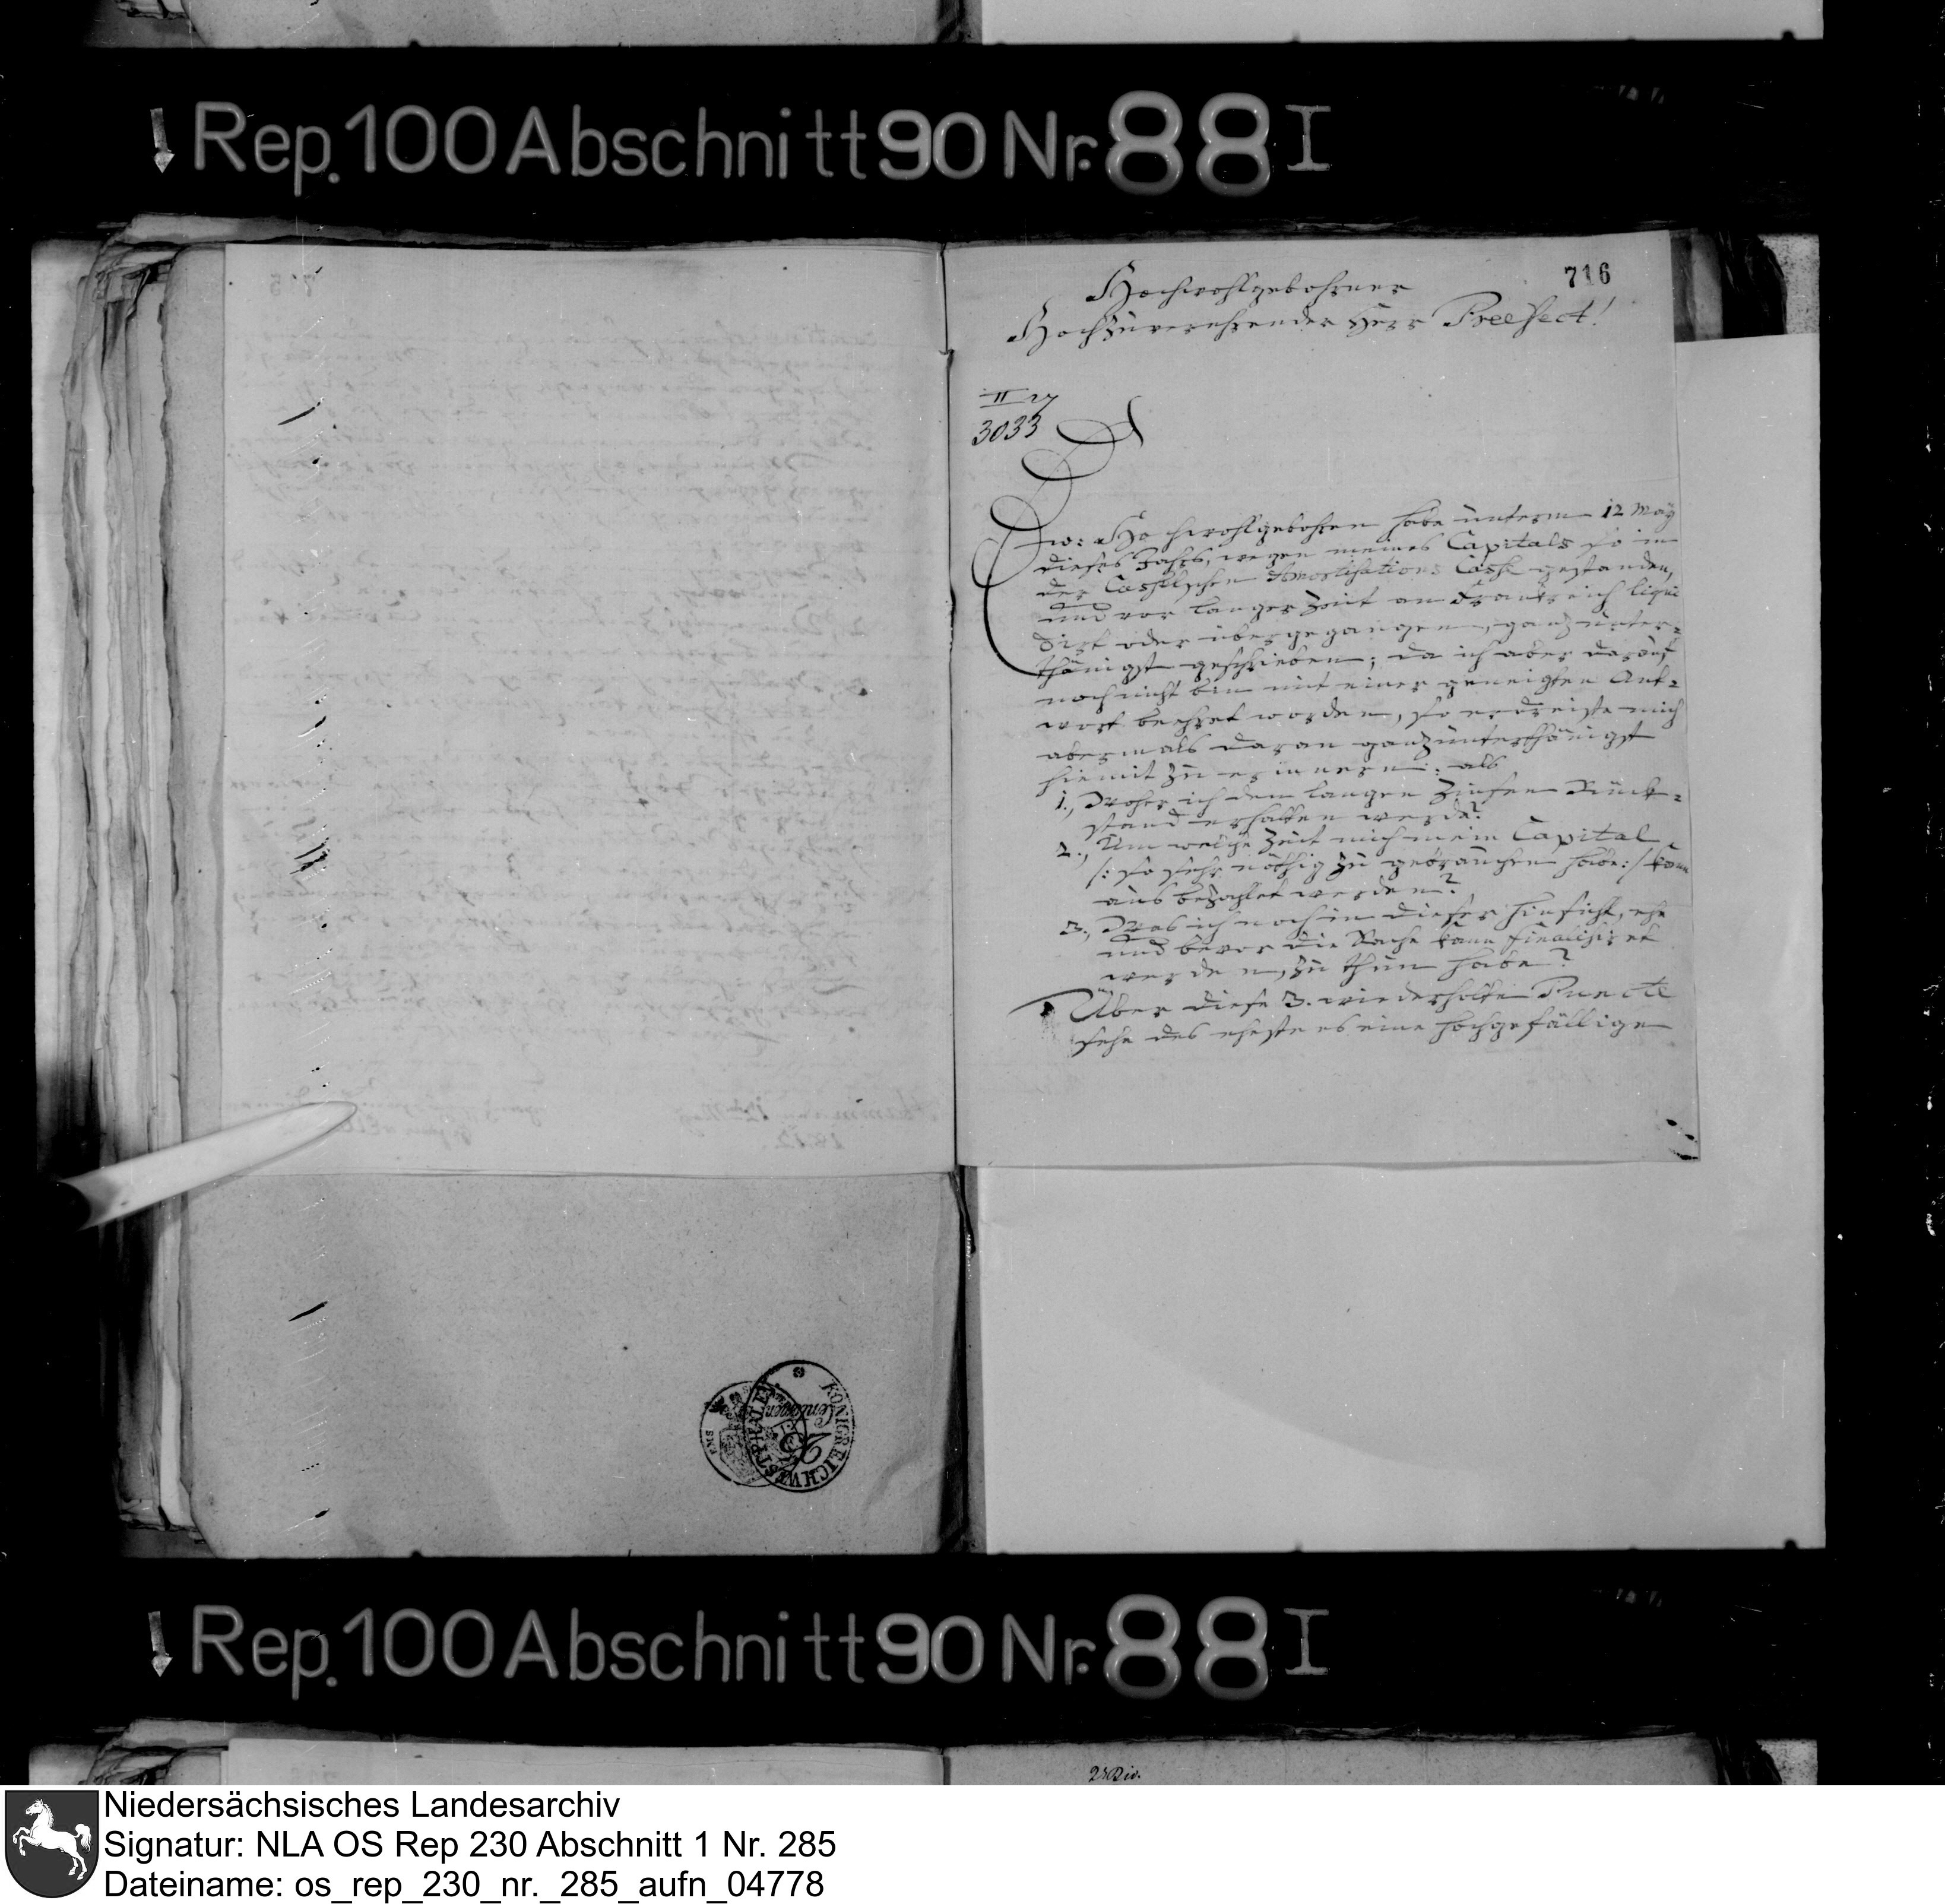 Rep. 100 Abschnitt 90 Nr. 88 I
716
Hochwohlgebohrner
Hochzuverehrender Herr Preefect!
II 27
3033
Ew: Hochwohlgebohren habe unterm 12 May
dieses Jahrs, wegen meines Capitals so in
der Casselschen Amortisations Casse gestanden,
und vor langer Zeit an Frankreich liqui
dirt oder übergegangen, ganz unter=
thänigst geschrieben; da ich aber darauf
noch nicht bin mit einer geneigten Ant=
wort beehret worden, so erdreiste mich
abermals daran ganz unterthänigst
hiemit zu erinnern: als
1., Woher ich den langen Zinsen Rück=
stand erhalten werde?
2., Um welche Zeit mich mein Capital
/: so sehr nöthig zu gebrauchen habe:/ kann
aus bezahlet werden?
3., Was ich noch in dieser hinsicht, ehe
und bevor die Sache kann finalisiret
werden, zu thun habe?
Über diese 3. wiederholte Puncte
sehe des ehesteres eine hochgefällige
KÖNIGREICH WESTPHALEN
Rep. 100 Abschnitt 90 Nr. 88 I
Niedersächsisches Landesarchiv
Signatur: NLA OS Rep 230 Abschnitt 1 Nr. 285
Dateiname: os_rep_230_nr._285_aufn_04778